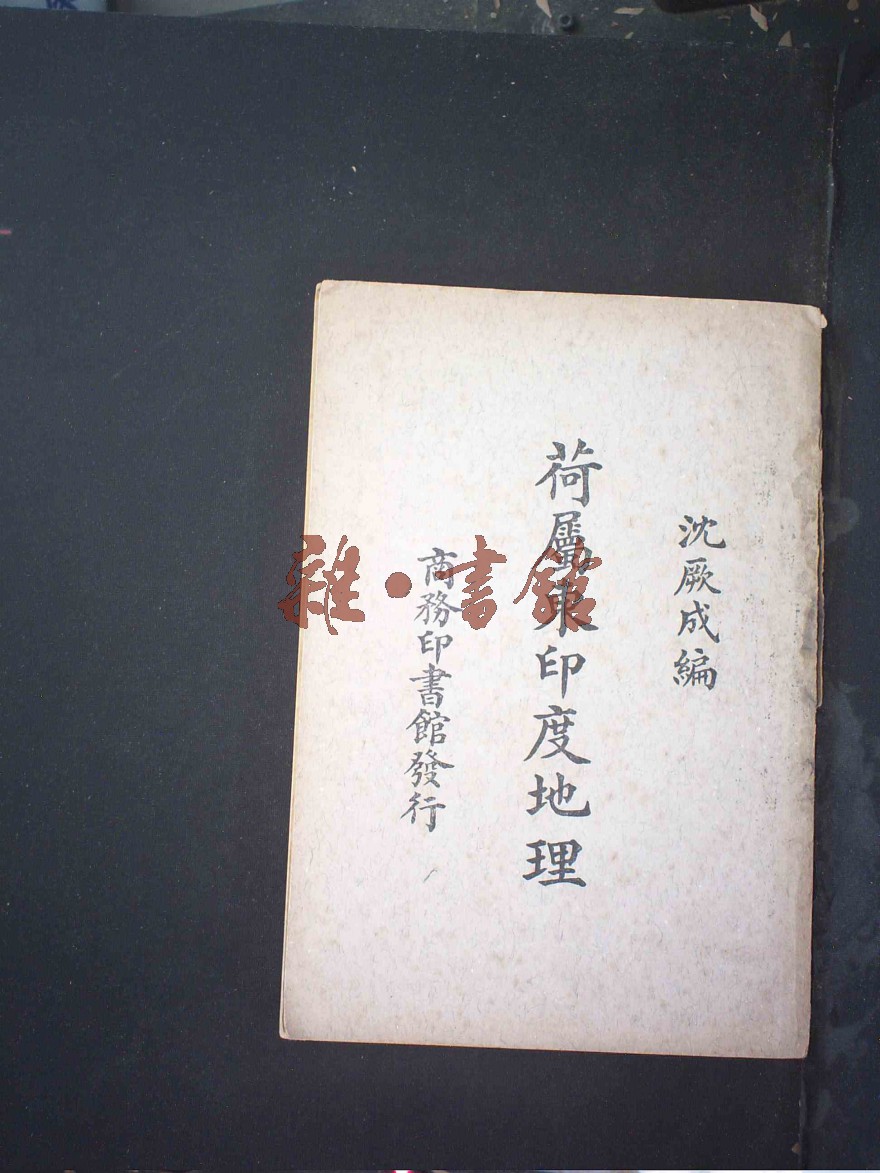 沈厥成編
荷屬東印度地理
商務印書館發行
雜·書館